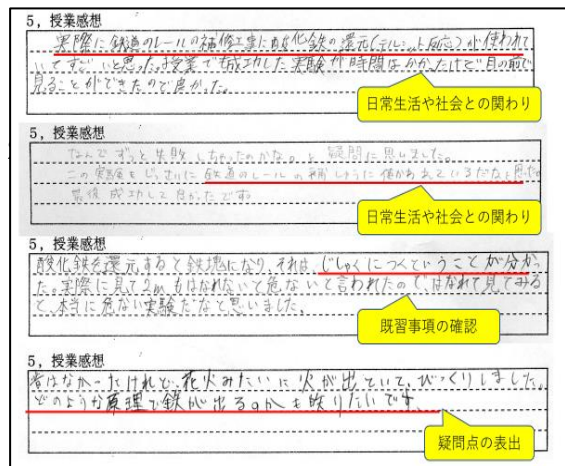 5，授業感想
実際に鉄道のレールの補修工事に酸化鉄の還元(テルミット反応)が使われて
いてすごいと思った。授業でも成功した実験が時間はかかたけど目の前で
見ることができたので良かった。
日常生活や社会との関わり
5，授業感想
なんでずっと失敗しちゃったのかな。と疑問に思いました。
この実験をじっさいに鉄道のレールの補しゅうに使われているだなと思った
最後成功して良かったです。
日常生活や社会との関わり
5，授業感想
酸化鉄を還元すると鉄塊になり、それは、じしゃくにつくということが分かっ
た。実際に見て2m もはなれないと危ないと言われたので、はなれて見てみる
と、本当に危ない実験だなと思いました。
既習事項の確認
5，授業感想
はなかったけれど、花火みたいに火が出ていて、びっくりしました。
どのような原理で鉄が出るのかも知りたいです。
疑問点の表出